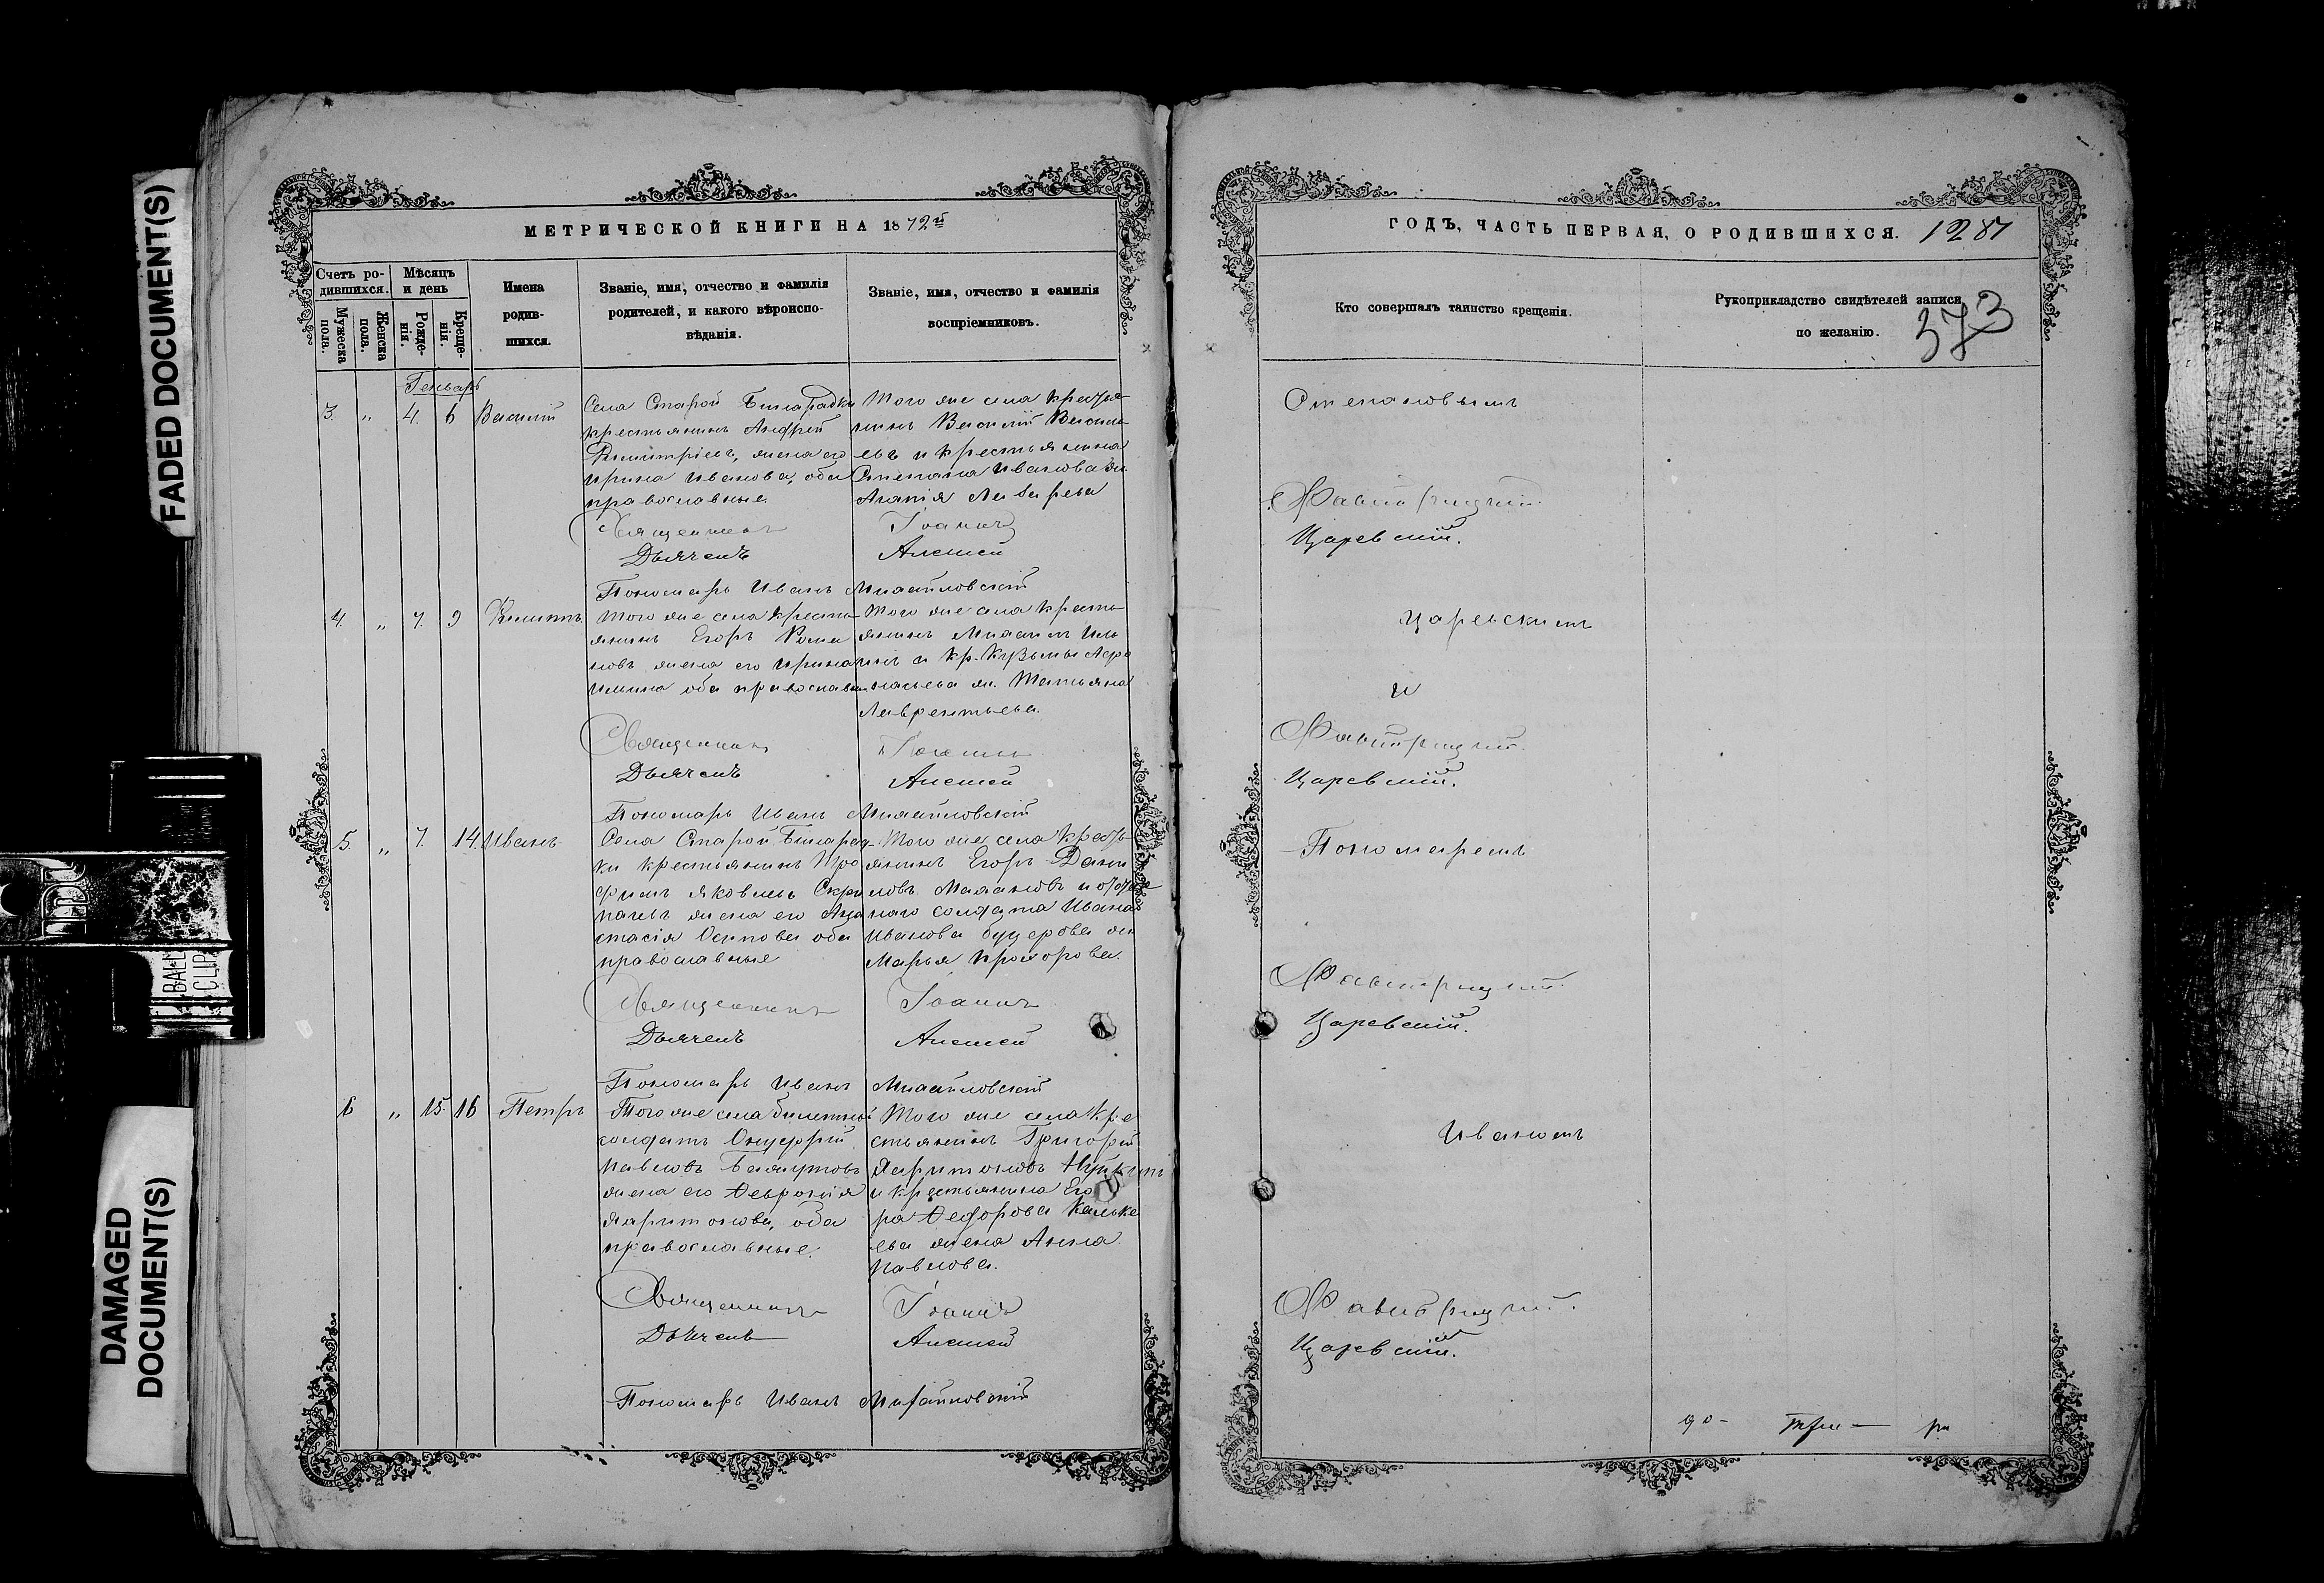 FADED DOCUMENT(S)
DAMAGED
DOCUMENT(S)
BALL
CLIP
МЕТРИЧЕСКОЙ КНИГИ НА 1872й
Счетъ ро-
дившихся.
Мужеска
пола.
Женска
пола.
Мѣсяцъ
и день
Рожде-
нія.
Креще-
нія.
Имена
родив-
шихся.
Званіе, имя, отчество и фамилія
родителей, и какого вѣроиспо-
вѣданія.
Званіе, имя, отчество и фамилія
воспріемниковъ.
Генварь
3. " 4. 6 Василій
Села Старой Бинарадки
крестьянинъ Андрей
Димитріевъ, жена его
Ирина Иванова, оба
православные
Того же села крестья-
нинъ Василій Василь-
евъ и крестьянина
Степана Иванова
Агапія Лазарева
Священникъ Іоаннъ
Дьячекъ Алексей
Пономарь Иванъ Михайловскій
4. " 7. 9
Того же села кресть-
янинъ Егоръ Рома
новъ жена его Ирина
оба православн
Того же села кресть-
янинъ
и кр. Кузьмы Афа
насьева ж. Татьяна
Лаврентьева.
Священникъ Іоаннъ
Дьячекъ Алексей
Пономарь Иванъ Михайловскій
5. " 7. 14. Иванъ
Села Старой Бинарад-
ки крестьянинъ Тро
фимъ Яковлевъ Скри
пачевъ жена его Ана
стасія Осипова оба
православные
Того же села кресть-
янинъ Егоръ Дани
ловъ Малановъ и
солдата Ивана
Иванова ж.
Марья Прохорова.
Священникъ Іоаннъ
Дьячекъ Алексей
Пономарь Иванъ Михайловскій
6 " 15. 16 Петръ
Того же села билетный
солдатъ Онуфрій
Павловъ
жена его Февронія
Харитонова, оба
православные.
Того же села кре
стьянинъ Григорій
Харитоновъ
и крестьянина Его
ра Федорова
ева жена Анна
Павлова.
Священникъ Іоаннъ
Дьячекъ Алексей
Пономарь Иванъ Михайловскій
ГОДЪ, ЧАСТЬ ПЕРВАЯ, О РОДИВШИХСЯ. 1287
Кто совершалъ таинство крещенія.
Рукоприкладство свидѣтелей записи
по желанію.
373
Степановымъ
Царевскій.
Царевскимъ
и
Царевскій.
Пономаремъ
Царевскій.
Иваномъ
Царевскій.